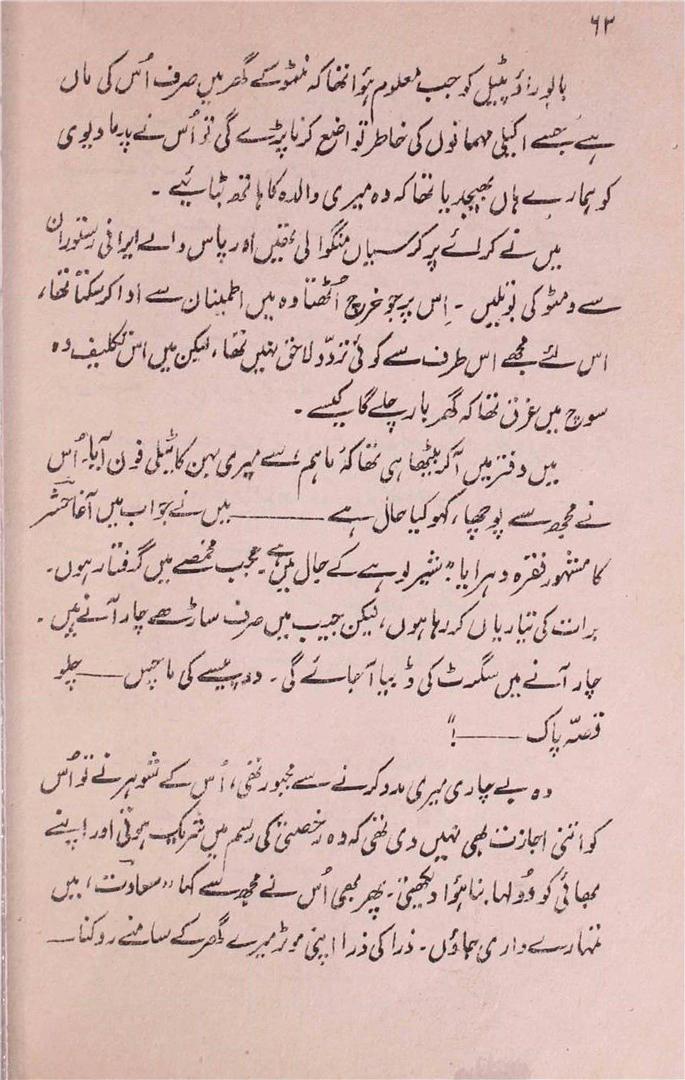 ۶۳
بابو راؤ پٹیل کو جب معلوم ہوا تھا کہ منٹو کے گھر میں صرف اُس کی ماں
ہے جسے اکیلی مہمانوں کی خاطر تواضع کرنا پڑے گی تو اُس نے پدما دیوی
کو ہمارے ہاں بھیجدیا تھا کہ وہ میری والدہ کا ہاتھ بٹائے ۔
میں نے کرائے پر کرسیاں منگوا لی تھیں اور پاس والے ایرانی رستوران
سے ومٹو کی بوتلیں ۔ اِس پر جو خرچ اُٹھتا وہ میں اطمینان سے ادا کر سکتا تھا،
اس لئے مجھے اس طرف سے کوئی تردّد لاحق نہیں تھا، لیکن میں اس تکلیف دہ
سوچ میں غرق تھا کہ گھر بار چلے گا کیسے ۔
میں دفتر میں آکر بیٹھا ہی تھا کہ ماہم، سے میری بہن کا ٹیلی فون آیا۔ اُس
نے مجھ سے پوچھا، کہو کیا حال ہے ——— میں نے جواب میں آغا حشر
کا مشہور فقرہ دہرایا "شیر لوہے کے جال میں ہے۔ عجب مخمصے میں گرفتار ہوں۔
برات کی تیاریاں کر رہا ہوں، لیکن جیب میں صرف ساڑھے چار آنے ہیں ۔
چار آنے میں سگرٹ کی ڈبیا آجائے گی ۔ دو پیسے کی ماچس —— چلو
قصّہ پاک ——!"
وہ بے چاری میری مدد کرنے سے مجبور تھی، اُس کے شوہر نے تو اُس
کو اتنی اجازت بھی نہیں دی تھی کہ وہ رخصتی کی رسم میں شریک ہوتی اور اپنے
بھائی کو دُولہا بنا ہوا دیکھتی۔ پھر بھی اُس نے مجھ سے کہا "سعادت، میں
تمہارے واری جاؤں ۔ ذرا کی ذرا اپنی موٹر میرے گھر کے سامنے روکنا —